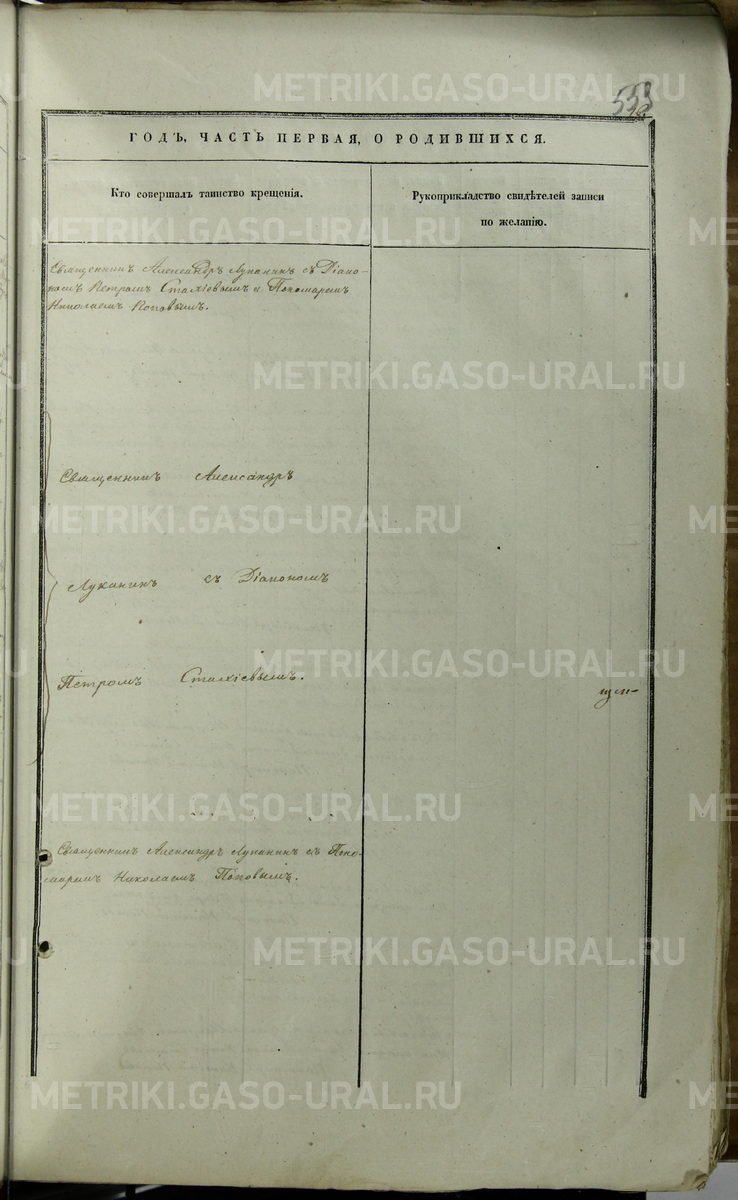 538
ГОДЪ, ЧАСТЬ ПЕРВАЯ, О РОДИВШИХСЯ.
Кто совершалъ таинство крещенія.
Рукоприкладство свидѣтелей записи
по желанію.
Священникъ Александръ Луканинъ съ Діако-
номъ Петромъ Стахіевымъ и Пономаремъ
Николаемъ Поповымъ.
Священникъ Александръ
Луканинъ съ Діакономъ
Петромъ Стахіевымъ.
Священникъ Александръ Луканинъ съ Поно-
маремъ Николаемъ Поповымъ.
METRIKI.GASO-URAL.RU